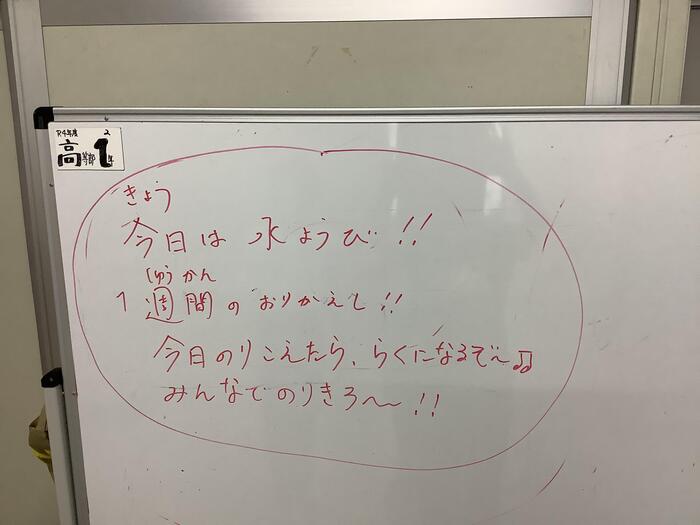 R4年度 2
高等部1年
きょう
今日は 水ようび!!
しゅうかん
1週間のおりかえし!!
今日のりこえたら、らくになるぞ〜♫
みんなでのりきろ〜!!